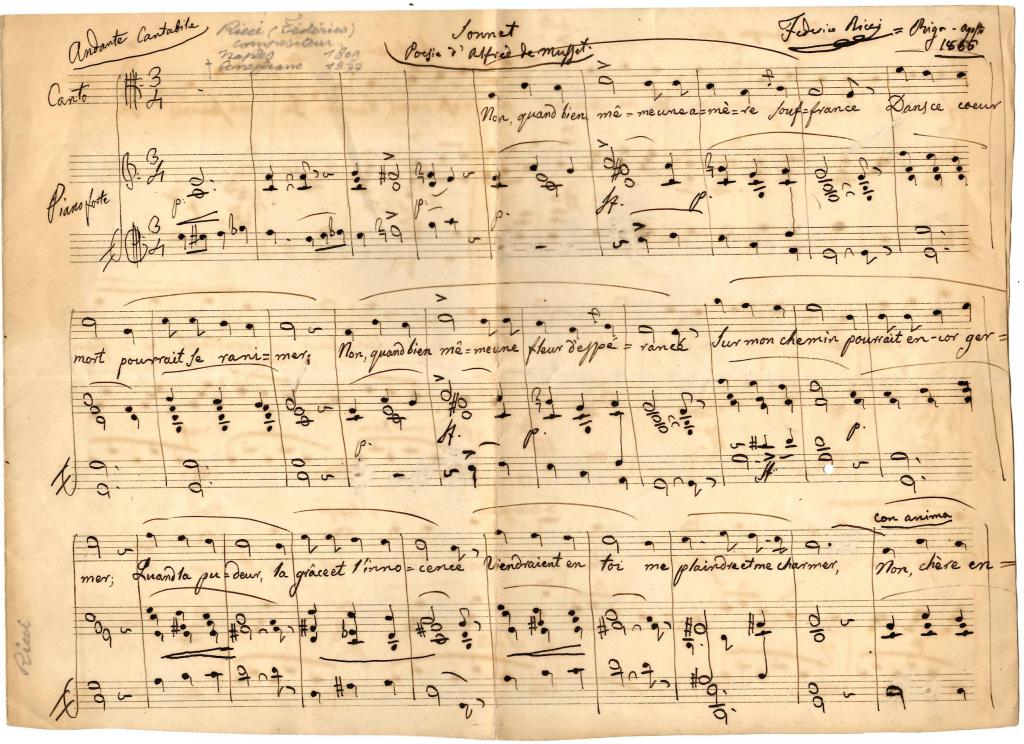 Andante Cantabile
Ricci (Federico)
compositeur
Sonnet
Poesie d'Alfred de Musset.
Federico Ricci = Riga - agosto
1866
Canto
3
4
Non, quand bien mê=me une a=mè=re souf=france Dans ce coeur
Piano forte
3
4
p.
p.
p.
ff.
p.
3
4
mort pourrait se rani=mer; Non, quand bien mê=me une fleur d'espé=rance Sur mon chemin pourrait en-cor ger=
p.
ff.
p.
p.
ff
con anima
mer; Quand la pu=deur, la grâce et l'inno=cence Viendraient en toi me plaindre et me charmer, Non, chère en=
Ricci